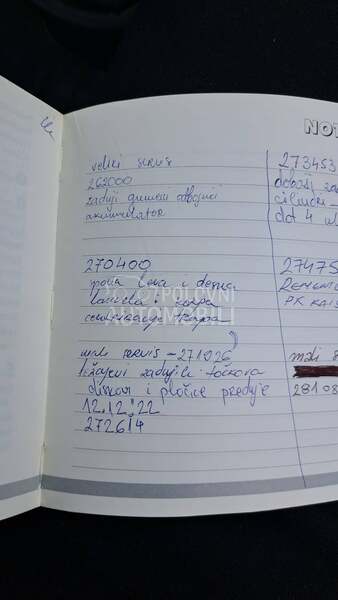 NOT
veliki servis
262000
zadnji gumeni odbojnici
akumulator
270400
nova leva i desna
kapa
centriranje trapa
mali servis - 271026
ležajevi zadnjih točkova
diskovi i pločice prednje
12.12.'22
272614
273453
dobošj za
cilindri -
dot 4 ul
27475
Remeno
PK KAIŠ
mali s
28108
POLOVNI
AUTOMOBILI